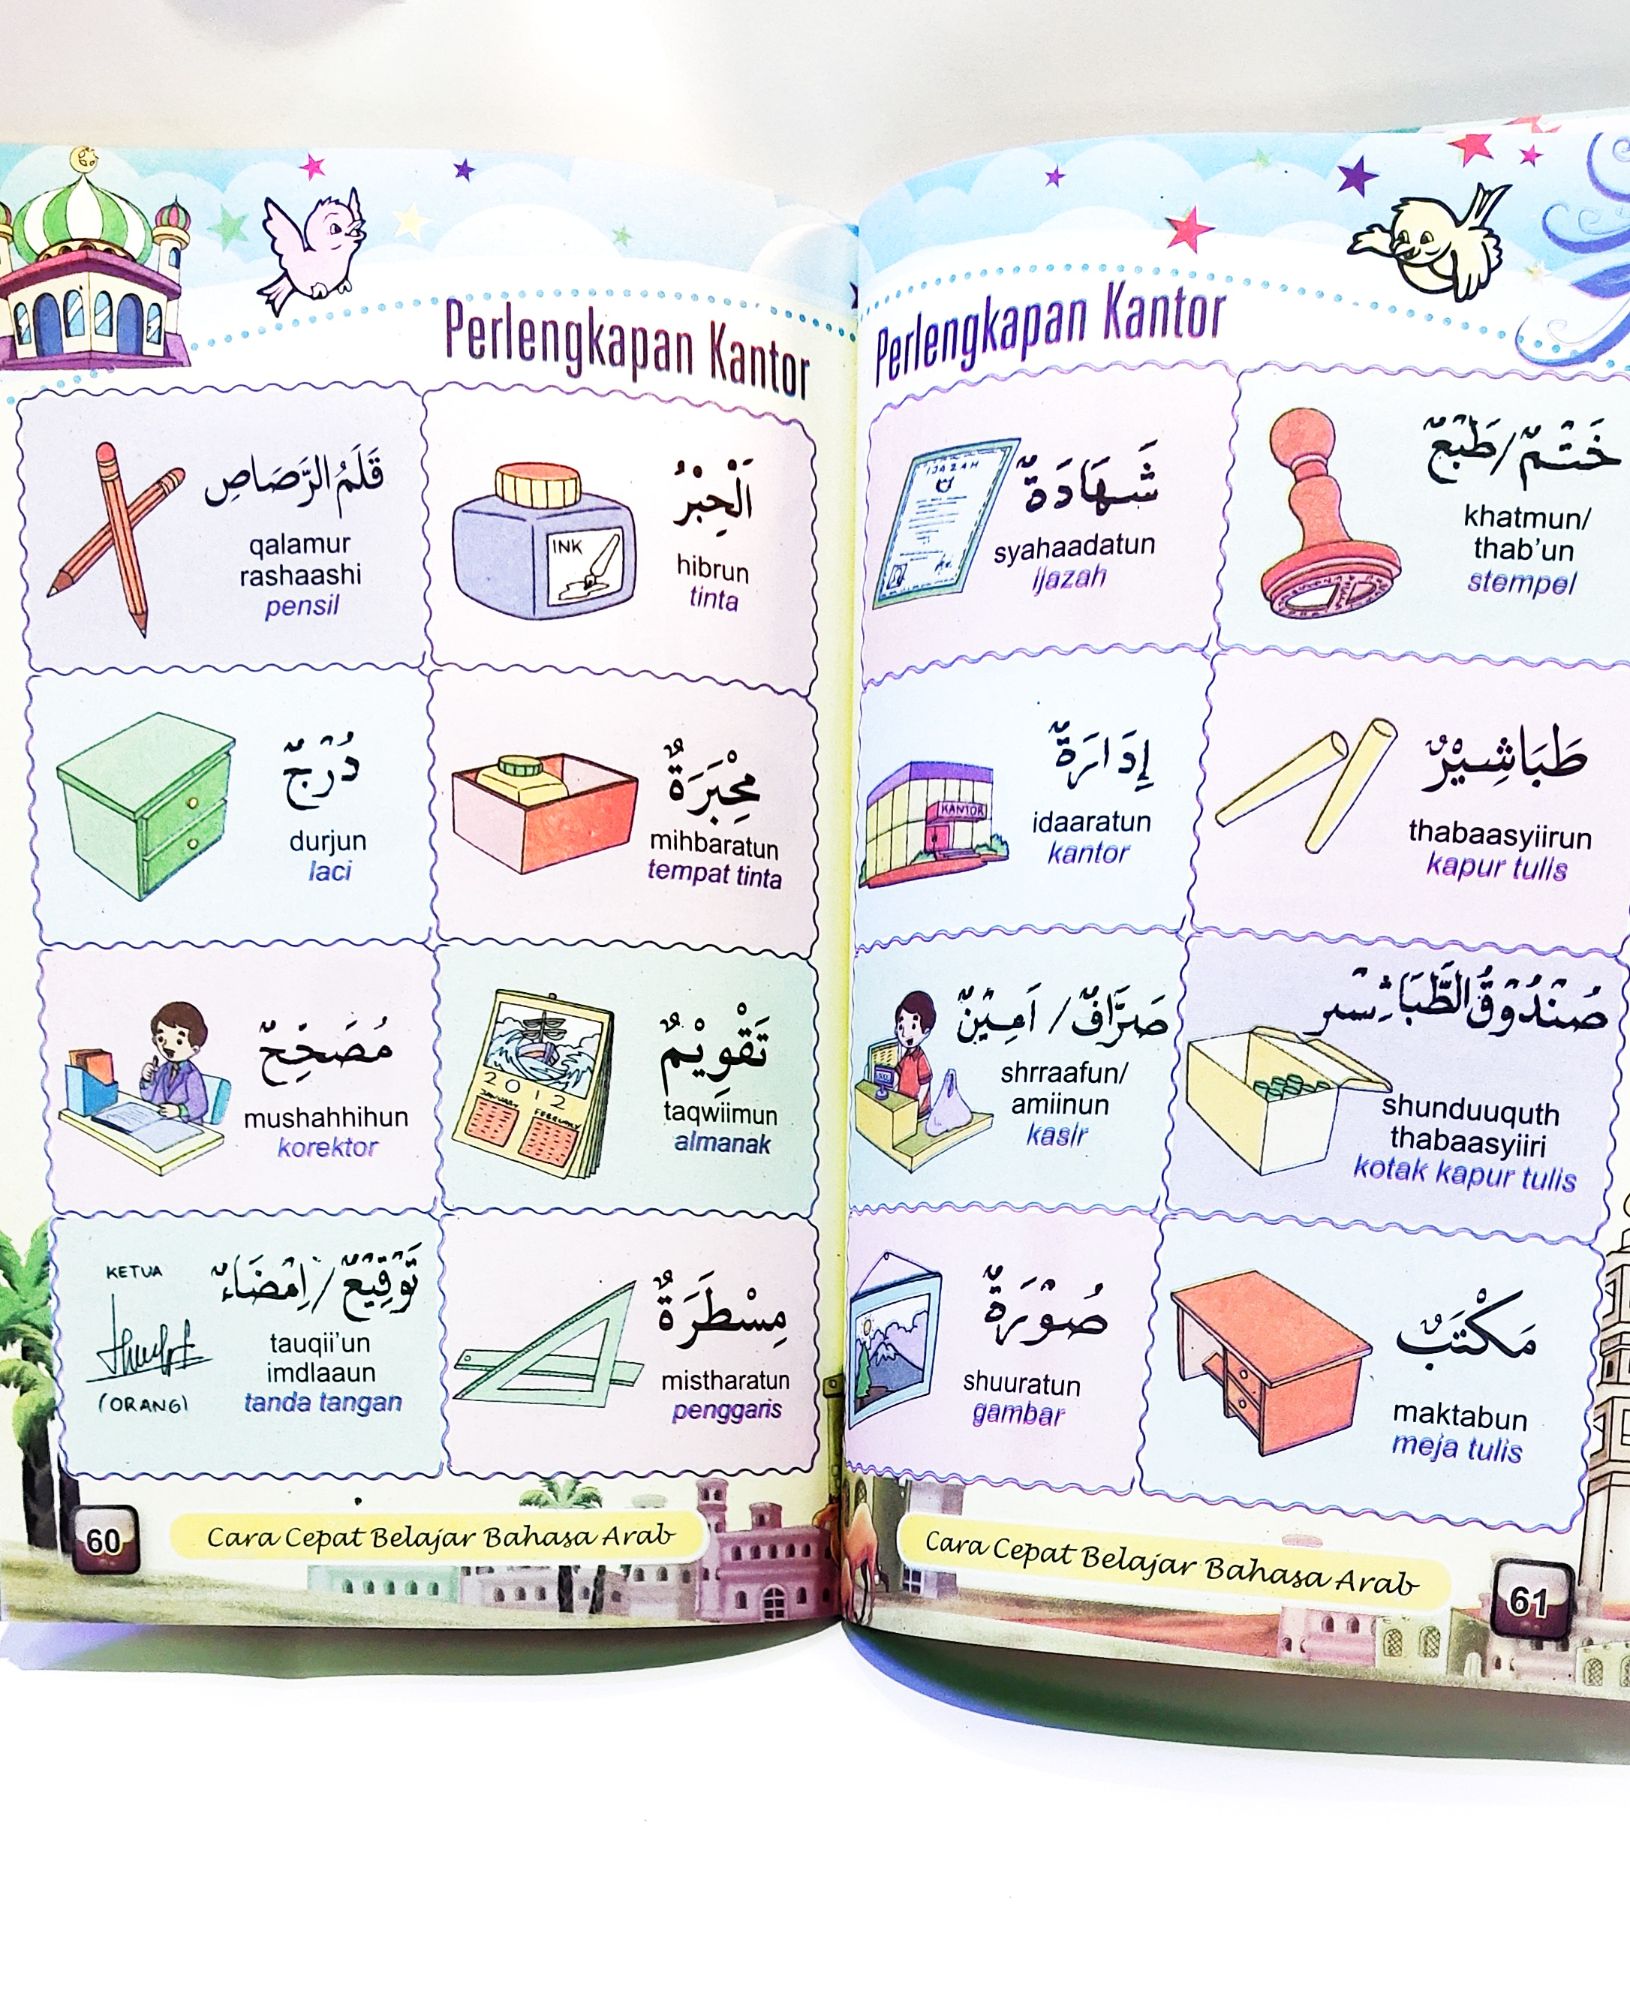 Perlengkapan Kantor
قَلَمُ الرَّصَاصِ
qalamur
rashaashi
pensil
INK
اَلْحِبْرُ
hibrun
tinta
دُرْجٌ
durjun
laci
مِحْبَرَةٌ
mihbaratun
tempat tinta
مُصَحِّحٌ
mushahhihun
korektor
2012
JANUARY
FEBRUARY
تَقْوِيْمٌ
taqwiimun
almanak
KETUA
(ORANG)
تَوْقِيْعٌ/اِمْضَاءٌ
tauqii’un
imdlaaun
tanda tangan
مِسْطَرَةٌ
mistharatun
penggaris
60
Cara Cepat Belajar Bahasa Arab
Perlengkapan Kantor
IJAZAH
شَهَادَةٌ
syahaadatun
ijazah
خَتْمٌ/طَبْعٌ
khatmun/
thab’un
stempel
KANTOR
إِدَارَةٌ
idaaratun
kantor
طَبَاشِيْرٌ
thabaasyiirun
kapur tulis
صَرَّافٌ/اَمِيْنٌ
shrraafun/
amiinun
kasir
صُنْدُوْقُ الطَّبَاشِيْر
shunduuquth
thabaasyiiri
kotak kapur tulis
صُوْرَةٌ
shuuratun
gambar
مَكْتَبٌ
maktabun
meja tulis
Cara Cepat Belajar Bahasa Arab
61